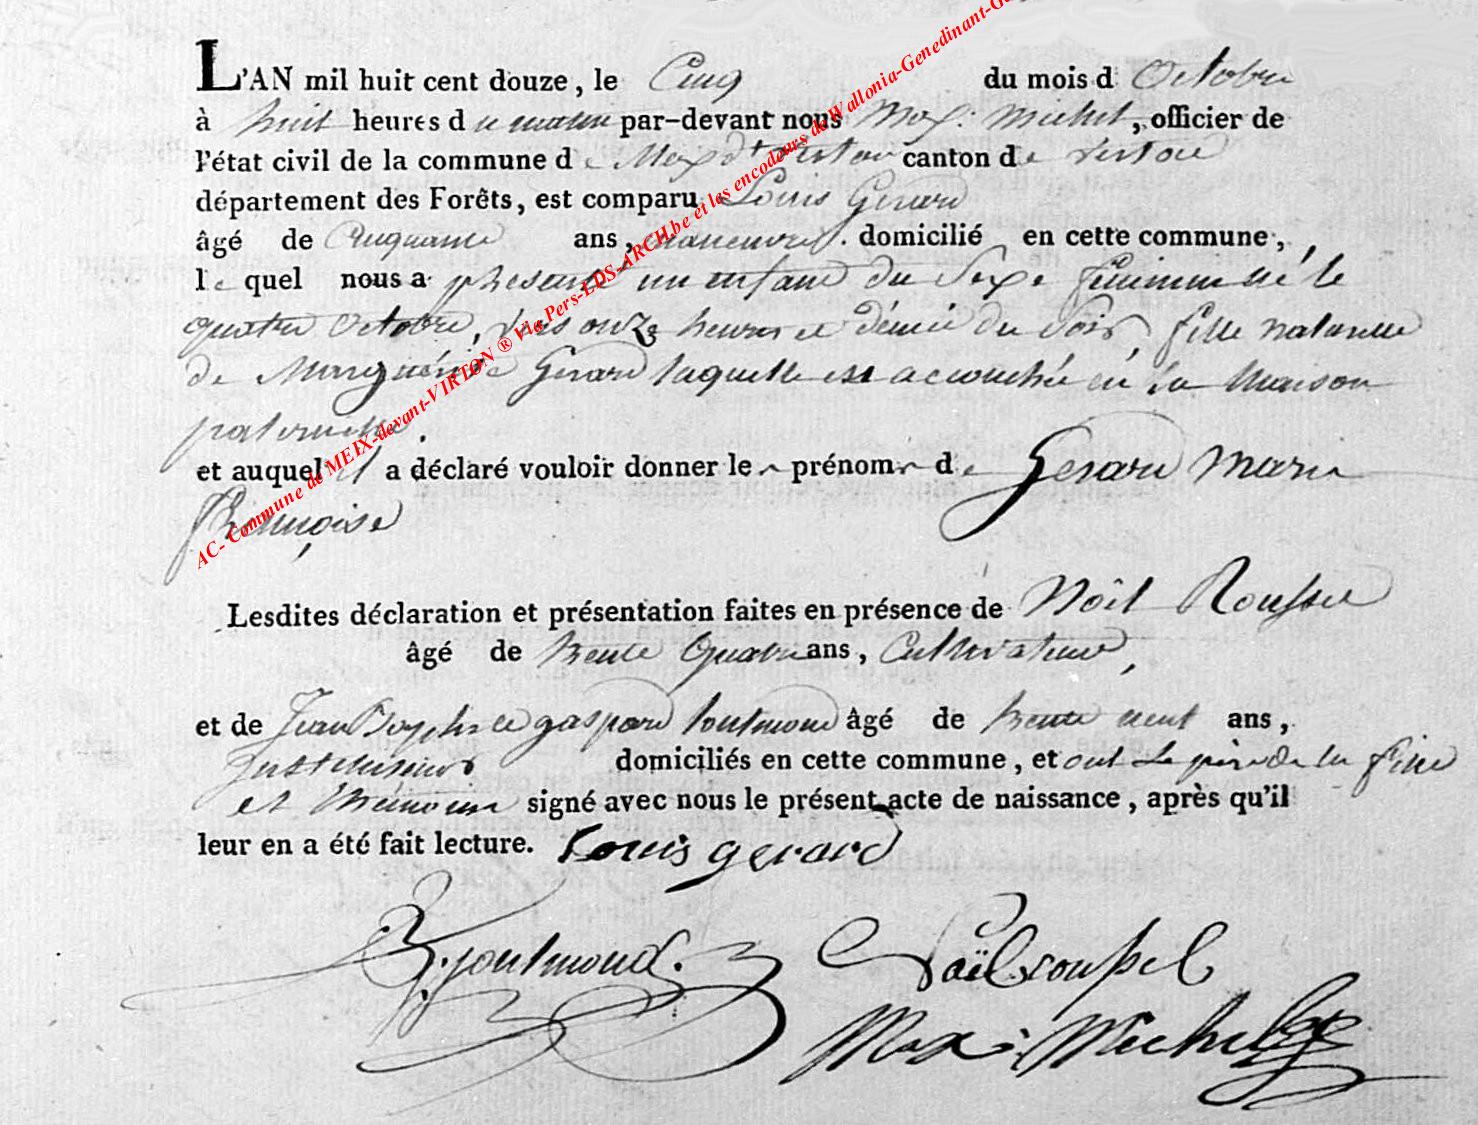 L'AN mil huit cent douze, le Cinq du mois d'Octobre
à huit heures du matin par-devant nous Max: Michel, officier de
l'état civil de la commune de Meix dt Virton canton de Virton
département des Forêts, est comparu Louis Gerard
âgé de Cinquante ans, maneuvre. domicilié en cette commune,
lequel nous a présenté un enfant du Sexe féminin né le
quatre Octobre, vers onze heures et démie du Soir, fille naturelle
de Marguérite Gerard laquelle est accouchée en la Maison
paternelle.
et auquel il a déclaré vouloir donner le prénom de Gerard Marie
Françoise
Lesdites déclaration et présentation faites en présence de Noël Roussel
âgé de trente Quatre ans, Cultivateur,
et de Jean Joseph gaspard toutmond âgé de trente neuf ans,
domiciliés en cette commune, et ont Le père de la fille
et témoins signé avec nous le présent acte de naissance, après qu'il
leur en a été fait lecture. Louis gerard
toutmond. Noël roussel
Max: Michel
AC- Commune de MEIX-devant-VIRTON ® Via Pers-LDS-ARCH.be et les encodeurs de Wallonia-Genedinant-